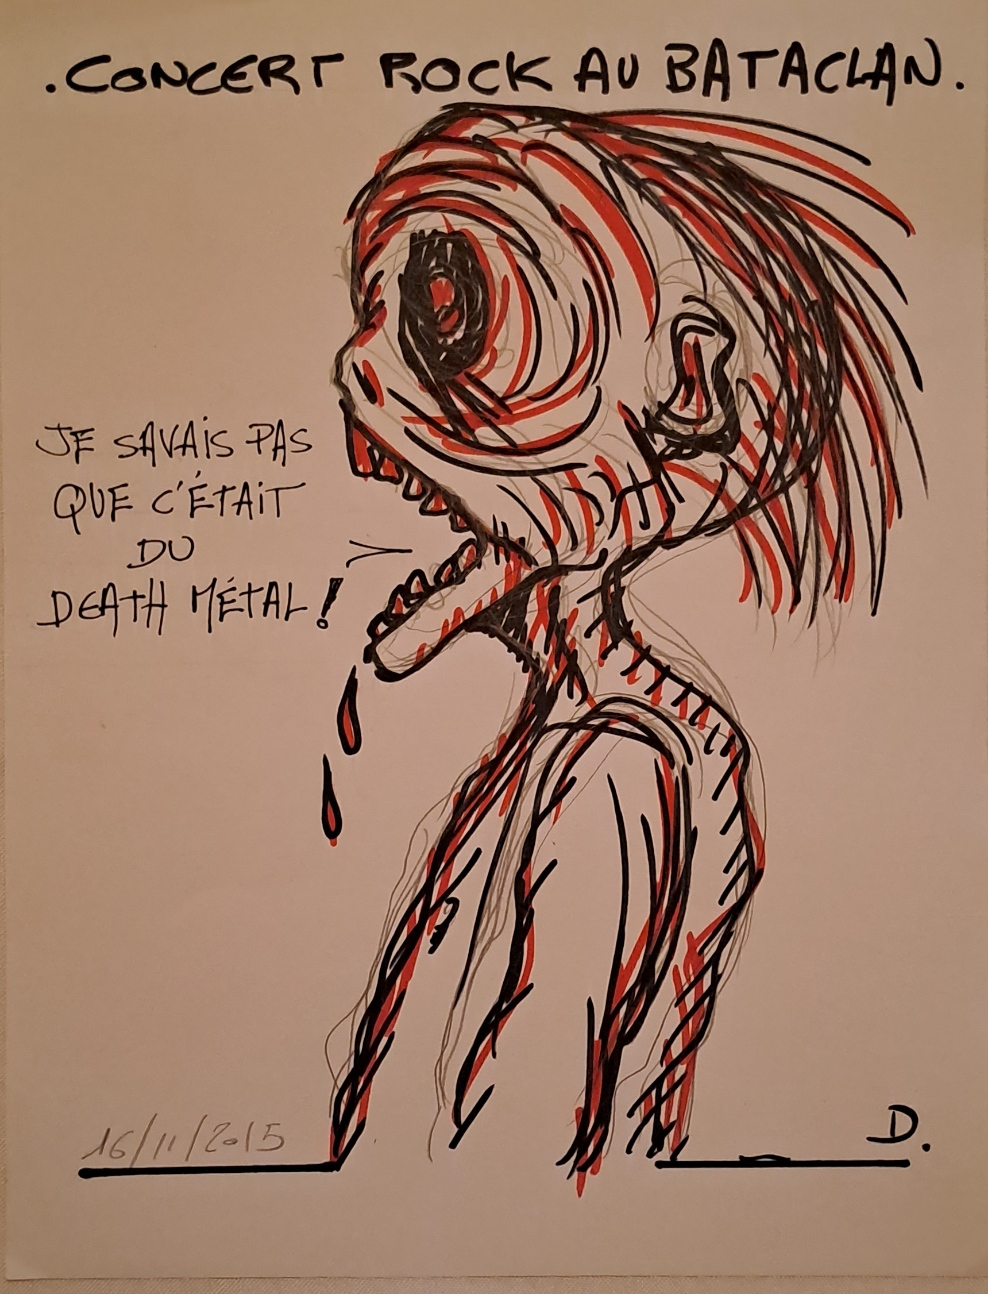 .CONCERT ROCK AU BATACLAN.
JE SAVAIS PAS
QUE C'ÉTAIT
DU
DEATH MÉTAL!
16/11/2015
D.